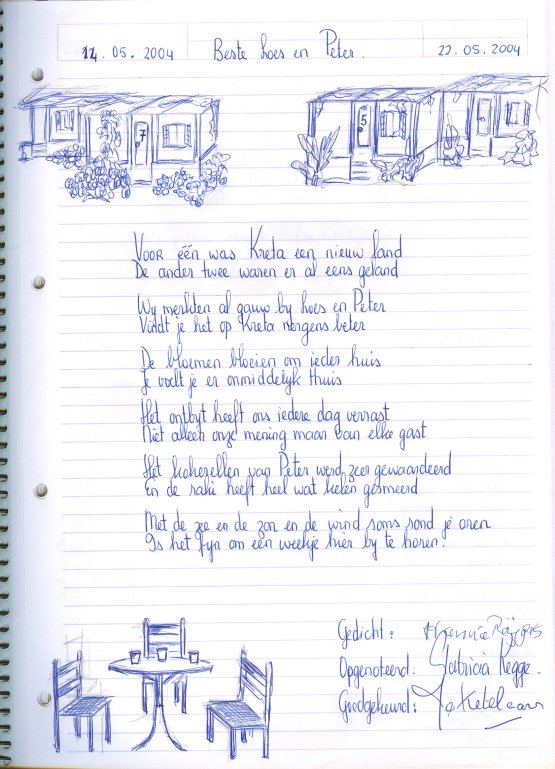 14.05.2004
Beste Loes en Peter.
22.05.2004
7
5
Voor één was Kreta een nieuw land
De ander twee waren er al eens geland
Wy merkten al gauw by Loes en Peter
Vindt je het op Kreta nergens beter
De bloemen bloeien om ieder huis
Je voelt je er onmiddelyk thuis
Het ontbyt heeft ons iedere dag verrast
Niet alleen onze mening maar van elke gast
Het kokerellen van Peter werd zeer gewaardeerd
En de raki heeft heel wat kelen gesmeerd
Met de zee en de zon en de wind soms rond je oren
Is het fyn om een weekje hier by te horen.
Gedicht:
Opgenoteerd: Patricia Regge.
Goedgekeurd: